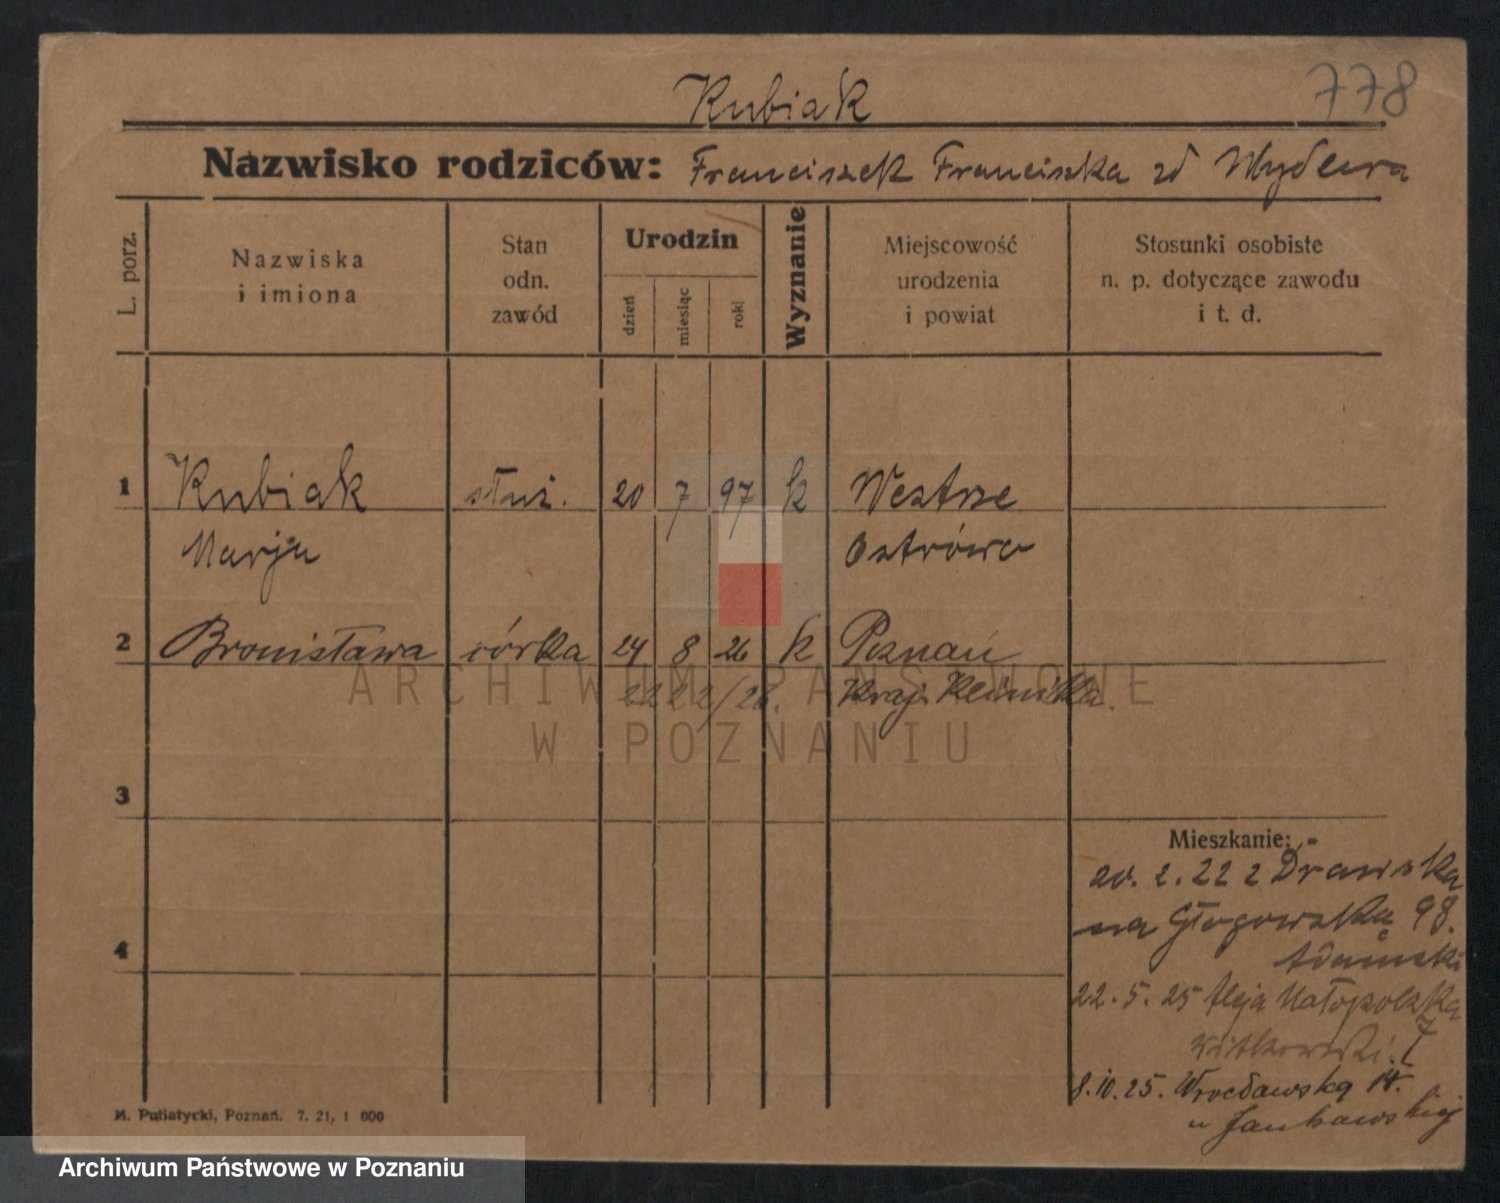 Kubiak 778
Nazwisko rodziców: Franciszek Franciszka zd
L. porz.
Nazwiska
i imiona
Stan
odn.
zawód
Urodzin
dzień
miesiąc
rok
Wyznanie
Miejscowość
urodzenia
i powiat
Stosunki osobiste
n. p. dotyczące zawodu
i t. d.
1 Kubiak służ. 20 7 97 k Wesztrze
Marja Osztrówo
2 Bronisława córka 24 8 26 k Poznań
2222/26. Kraj. Klinika.
ARCHIWUM PAŃSTWOWE
W POZNANIU
3
4
Mieszkanie:
20. 2. 22 z Drawską
na Głogowską 98.
Adamski
22. 5. 25 Aleja Małopolska
7
Witkowski.
8. 10. 25. Wrocławską 14.
u Jankowskiej
M. Putiatycki, Poznań. 7. 21, 1 000
Archiwum Państwowe w Poznaniu